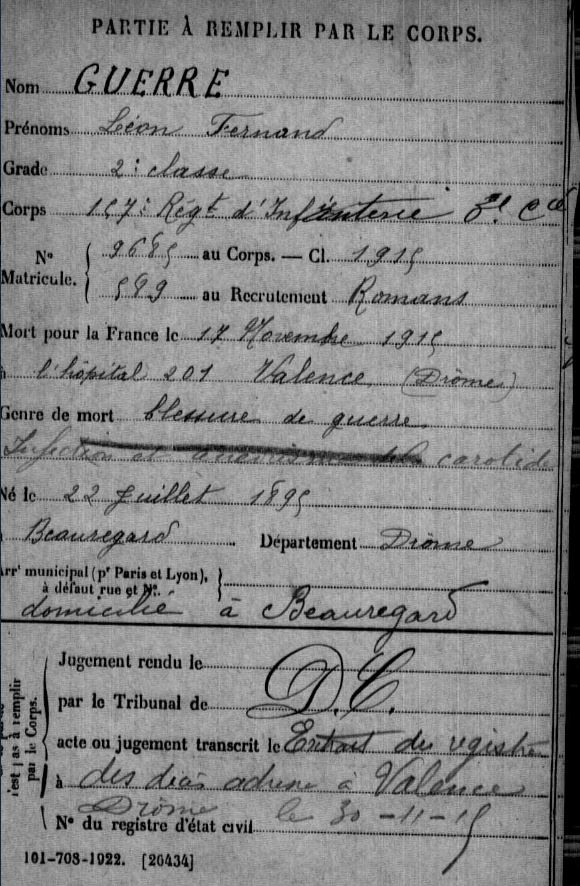 PARTIE À REMPLIR PAR LE CORPS.
Nom GUERRE
Prénoms Léon Fernand
Grade 2e classe
Corps 157e Régt d'Infanterie Cie
N° Matricule. 9685 au Corps. — Cl. 1915
599 au Recrutement Romans
Mort pour la France le 17 Novembre 1915
à l'hôpital 201 Valence (Drôme)
Genre de mort blessure de guerre
Infection et carotide
Né le 22 Juillet 1895
Beauregard Département Drôme
Arrt municipal (pr Paris et Lyon),
à défaut rue et N°.
domicilié à Beauregard
Jugement rendu le
par le Tribunal de D.C.
acte ou jugement transcrit le Extrait du registre
à des à Valence
Drôme le 30-11-15
N° du registre d'état civil
par le Corps.
101-708-1922. [26434]